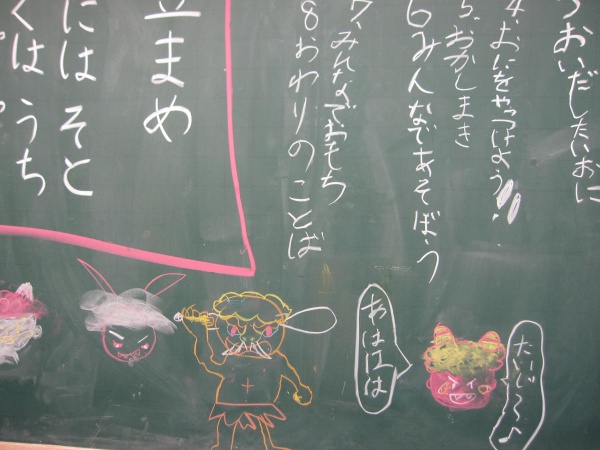 おいだしたいおに
4.おにをやっつけよう!
5.おかしまき
6みんなであそぼう
7.みんなでおもち
8おわりのことば
まめ
にはそと
くはうち
たいじ〜〜♪